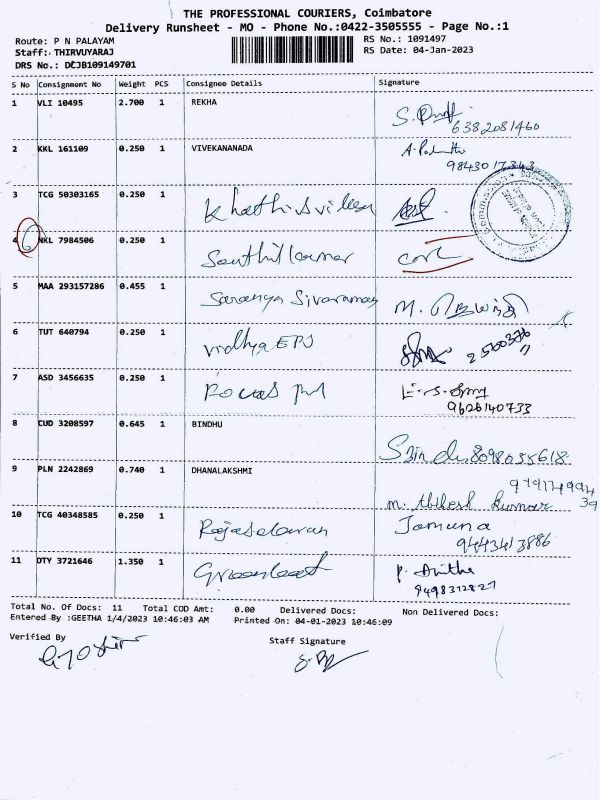 THE PROFESSIONAL COURIERS, Coimbatore
Delivery Runsheet - MO - Phone No.:0422-3505555 - Page No.:1
Route: P N PALAYAM
RS No.: 1091497
Staff: THIRVUYARAJ
RS Date: 04-Jan-2023
DRS No.: DCJB109149701
S No Consignment No Weight PCS Consignee Details Signature
1 VLI 10495 2.700 1 REKHA
6382081460
2 KKL 161109 0.250 1 VIVEKANANADA
9843017343
3 TCG 50303165 0.250 1
4 NKL 7984506 0.250 1 Senthilkumar
5 MAA 293157286 0.455 1 Saranya Sivaraman
6 TUT 640794 0.250 1 Vidhya EPS
7 ASD 3456635 0.250 1
9626140733
8 CUD 3208597 0.645 1 BINDHU
8098055618
9 PLN 2242869 0.740 1 DHANALAKSHMI
10 TCG 40348585 0.250 1 Jamuna
9443413886
11 OTY 3721646 1.350 1 P. Anitha
Total No. Of Docs: 11 Total COD Amt: 0.00 Delivered Docs: Non Delivered Docs:
Entered By :GEETHA 1/4/2023 10:46:03 AM Printed On: 04-01-2023 10:46:09
Verified By Staff Signature